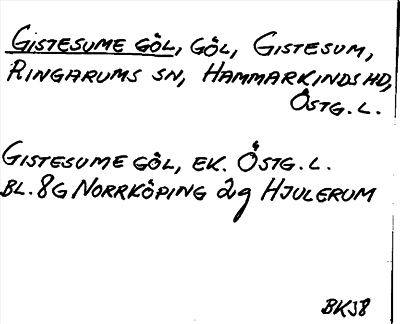 GISTESUME GÖL, GÖL, GISTESUM,
RINGARUMS SN, HAMMARKINDS HD,
ÖSTG. L.
GISTESUME GÖL, EK. ÖSTG. L.
BL. 8G NORRKÖPING 2g HJULERUM
BKJ8